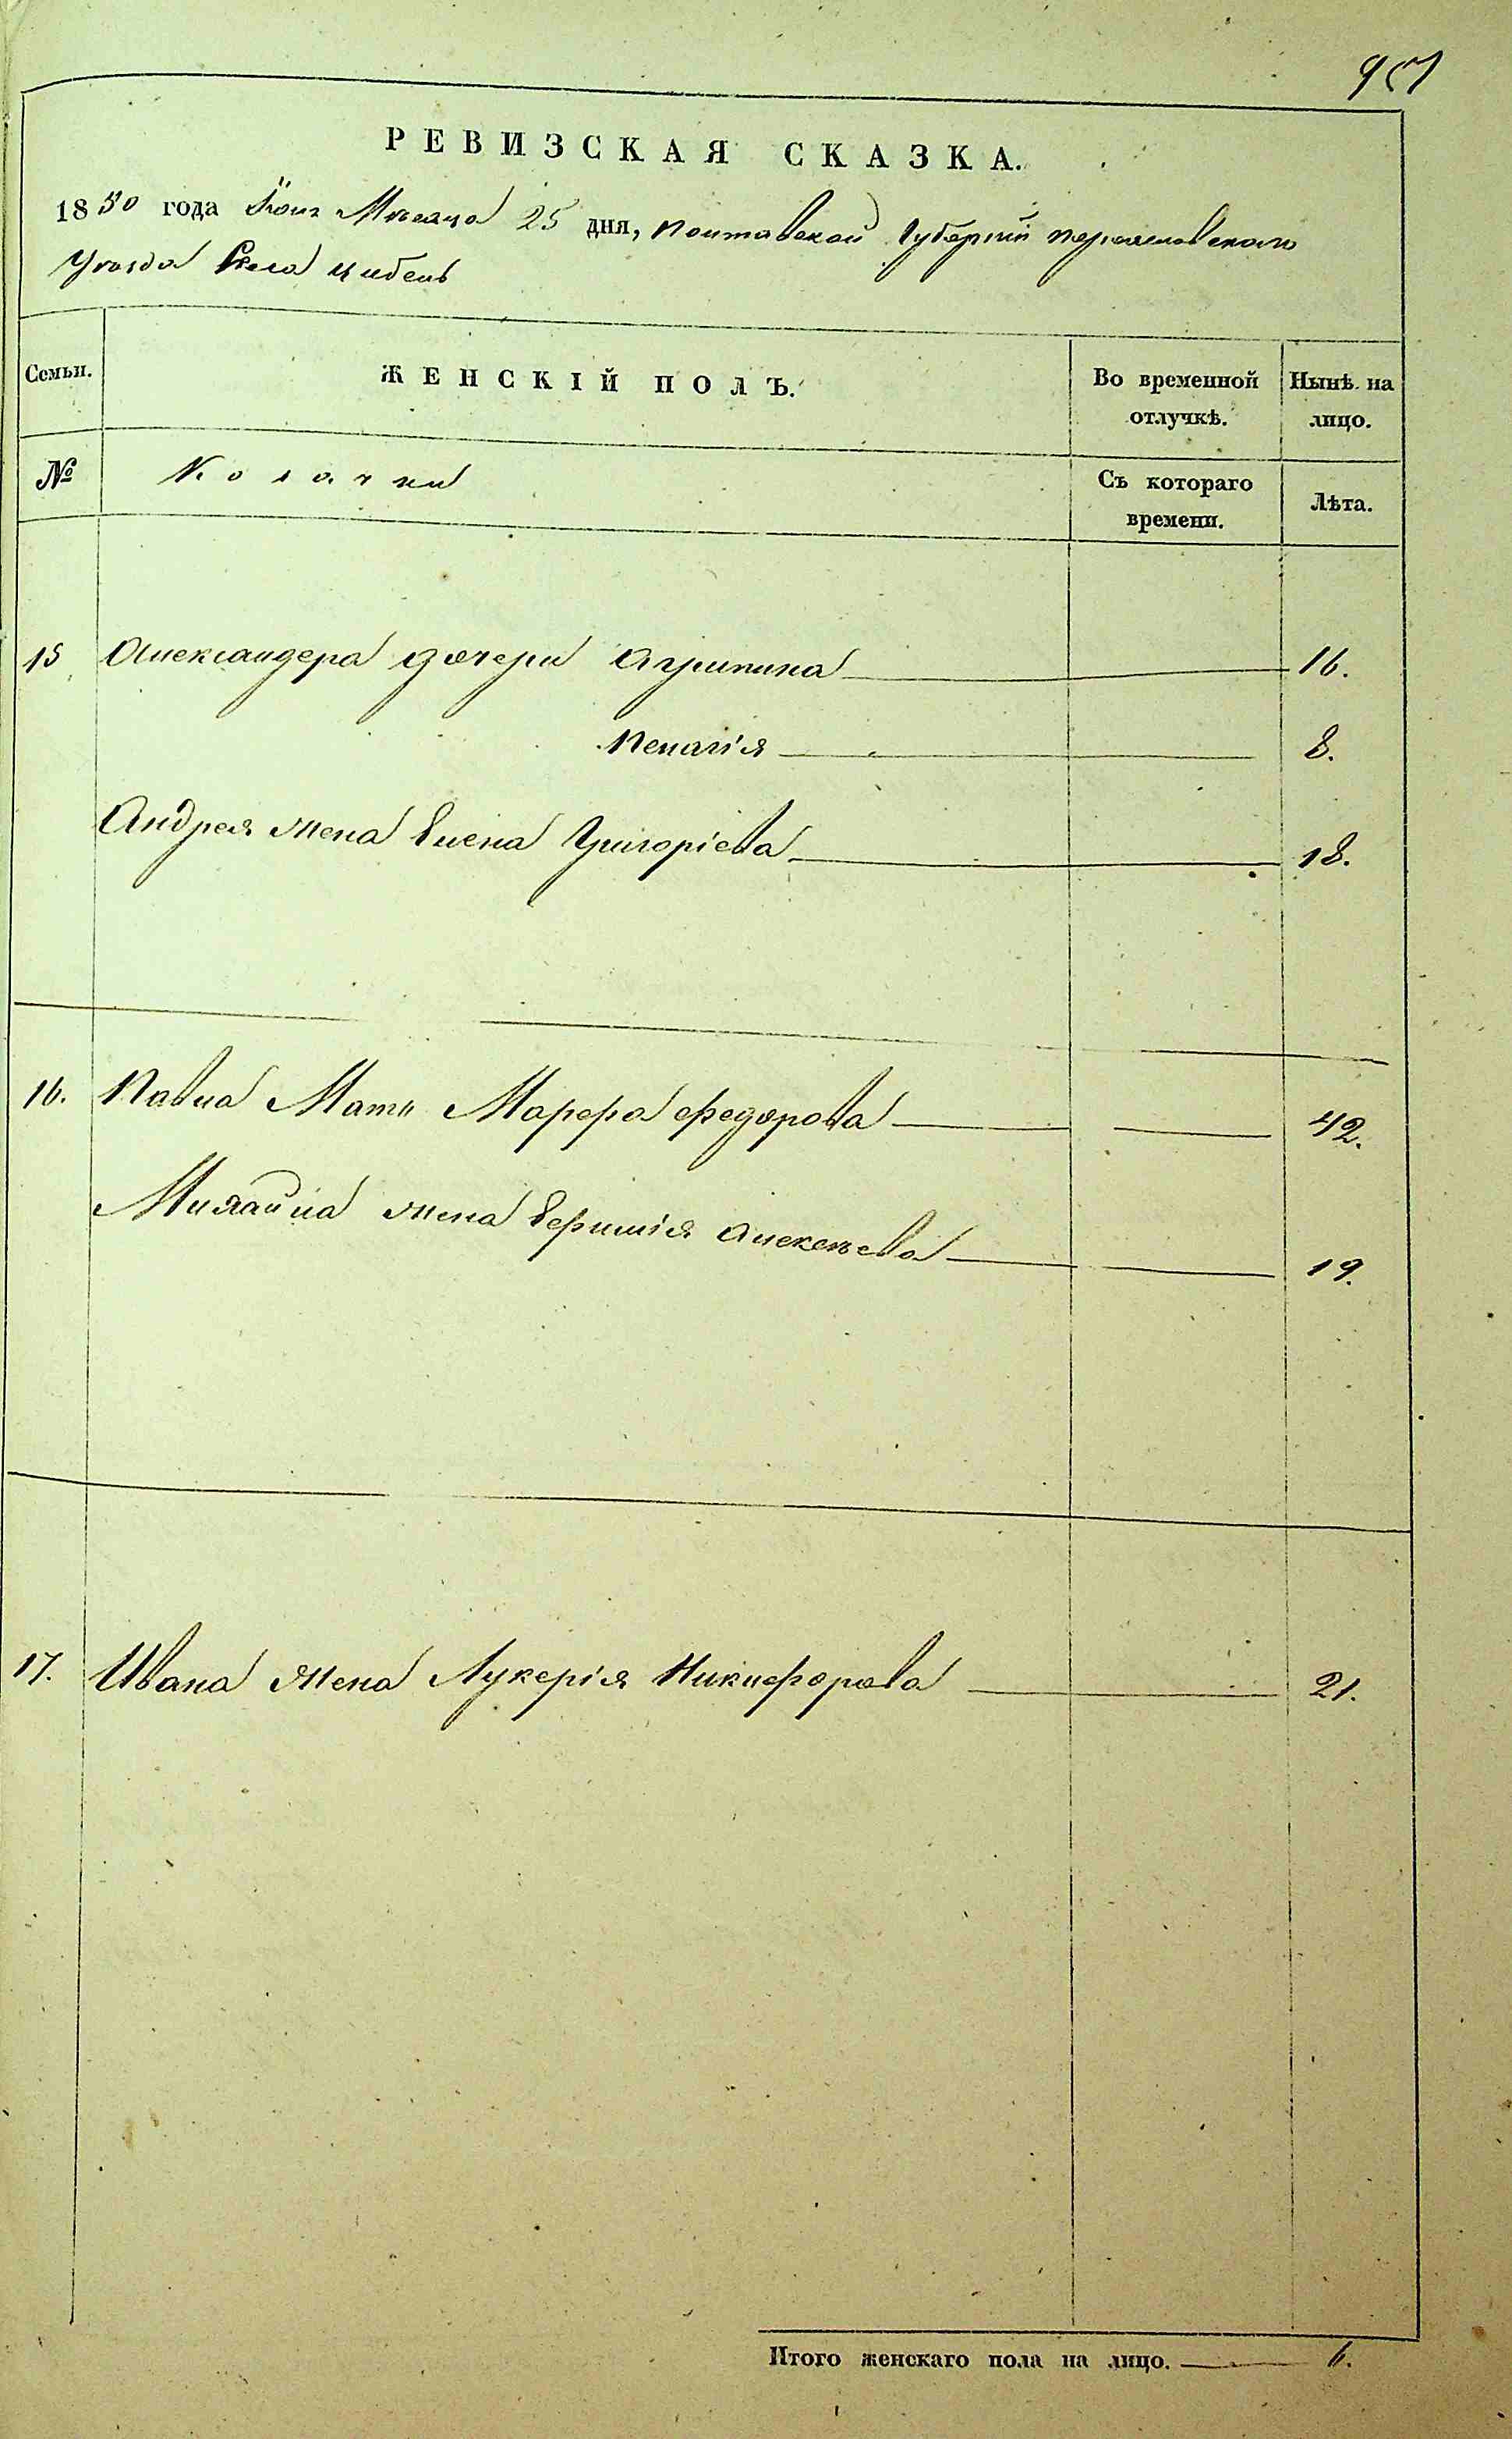 РЕВИЗСКАЯ СКАЗКА.
1850 года Июня Мѣсяца 25 дня, Полтавской Губерніи Переяславскаго
Уѣзда Села Цибель
Семьи.
ЖЕНСКІЙ ПОЛЪ.
Во временной отлучкѣ.
Нынѣ на лицо.
№
Козачки
Съ котораго времени.
Лѣта.
15 Александера дочери Агрипина 16.
Пелагія 8.
Андрея жена Елена Григоріева 18.
16. Павла Мать Марфа Федорова 42.
Михайла жена Евфимія Алексѣева 19.
17. Ивана жена Лукерія Никифорова 21.
Итого женскаго пола на лицо. 6.